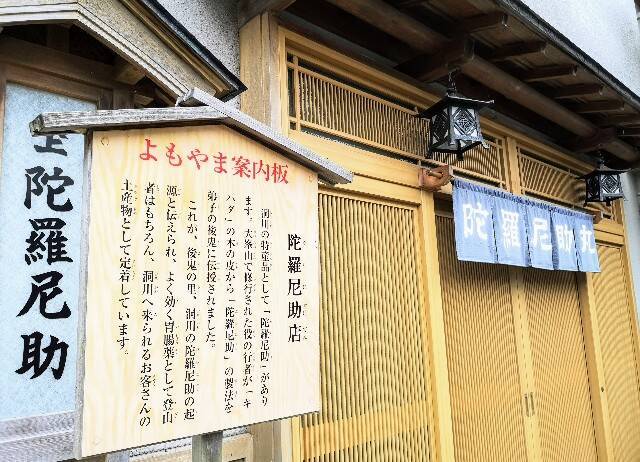 よもやま案内板
陀羅尼助店
洞川の特産品として「陀羅尼助」があり
ます。大峯山で修行された役の行者が「キ
ハダ」の木の皮から「陀羅尼助」の製法を
弟子の後鬼に伝授されました。
これが、後鬼の里、洞川の陀羅尼助の起
源と伝えられ、よく効く胃腸薬として登山
者はもちろん、洞川へ来られるお客さんの
土産物として定着しています。
陀羅尼助
陀羅尼助丸